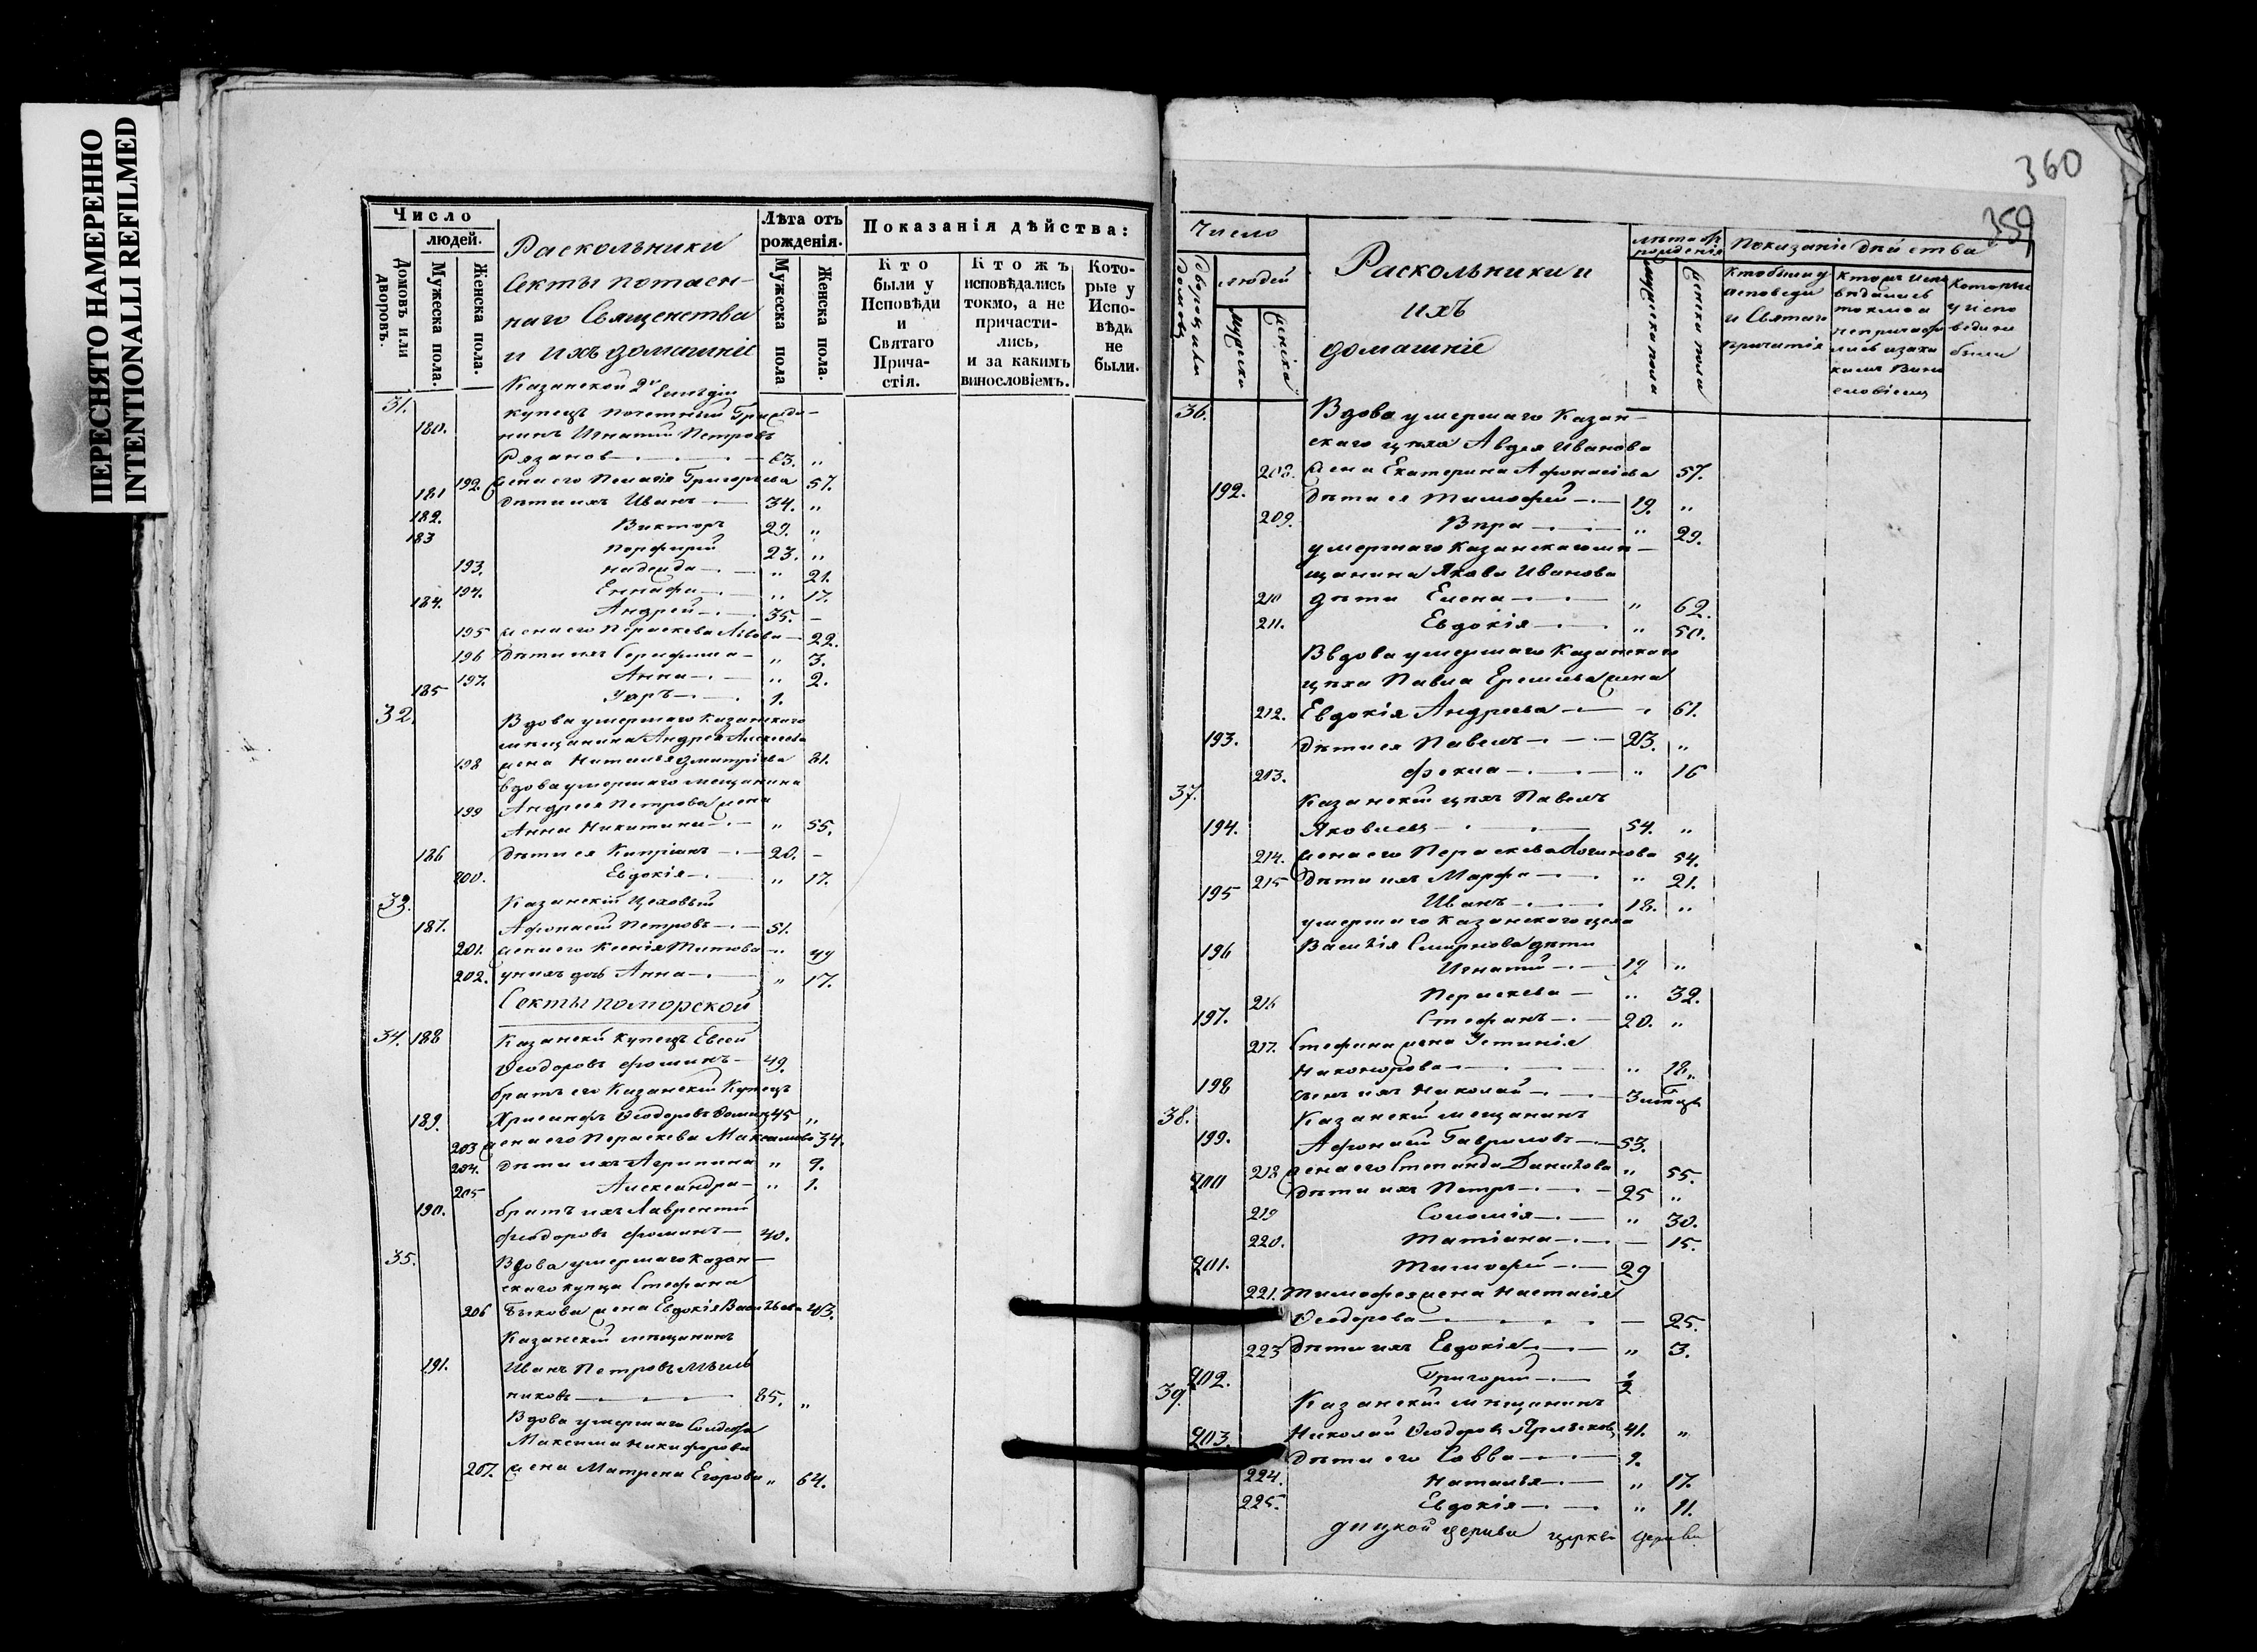 ПЕРЕСНЯТО НАМЕРЕННО
INTENTIONALLI REFILMED
Число
людей.
Домовъ или дворовъ.
Мужеска пола.
Женска пола.
Раскольники
Секты потаен-
наго Священства
и ихъ домашніе
Лѣта отъ рожденія.
Мужеска пола
Женска пола.
Показанія дѣйства:
Кто были у Исповѣди и Святаго Причастія.
Ктожъ исповѣдались токмо, а не причастились, и за какимъ винословіемъ.
Которые у Исповѣди не были.
31. Казанской 2й Гильдіи
купецъ почетный Гражда-
180. нинъ Игнатій Петровъ
Рязановъ 63. "
192. жена его Пелагія Григорьева 57.
181 дѣти ихъ Иванъ 34. "
182. Викторъ 29. "
183 Порфирій 23. "
193. Надежда " 21.
194. " 17.
184. Андрей 35. -
195 жена его Параскева Львова 22.
196 дѣти ихъ Серафима " 3.
197. Анна " 2.
185 Уаръ 1.
32. Вдова умершаго Казанскаго
мѣщанина Андрея Алексѣева
198 жена Наталья Дмитріева 81.
вдова умершаго мещанина
199 Андрея Петрова жена
Анна Никитина " 55.
186 дѣти ея Кипріанъ 20. -
200. Евдокія " 17.
33. Казанскій Цеховый
187. Афонасій Петровъ 51.
201. жена его Ксенія Титова " 49
202. у нихъ дочь Анна " 17.
Секты поморской
34. 188 Казанскій купецъ Евсей
Ѳеодоровъ Фоминъ 49.
братъ его Казанскій Купецъ
189. Хрисанфъ Ѳеодоровъ Фоминъ 45 "
203 жена его Параскева Максимова 34.
204. дѣти ихъ Агрипина " 9.
205 Александра " 1.
190. братъ ихъ Лаврентій
Феодоровъ Фоминъ 40.
35. Вдова умершаго Казан-
скаго купца Стефана
206 Быкова жена Евдокія Васильева 43.
Казанскій мѣщанинъ
191. Иванъ Петровъ Мѣль
никовъ 85. "
Вдова умершаго Солдата
Максима Никифорова
207. жена Матрена Егорова " 64.
360
359
Число
дворовъ или домовъ
людей
мужска
женска
Раскольники и
ихъ
домашніе
лѣта отъ рожденія
мужеска пола
женска пола
Показаніе дѣйства
Кто были у исповеди и Святаго причастія
Ктожъ исповѣдались токмо а не причастились и за какимъ Винословіемъ
Которые у исповеди не были
36. Вдова умершаго Казан-
скаго цѣха Авдея Иванова
208. жена Екатерина Афонасіева 57.
192. дѣти ея Тимофей 19. "
209. Вѣра " 29.
умершаго Казанскаго мѣ-
щанина Якова Иванова
210 дѣти Елена " 62.
211. Евдокія " 50.
Ввдова умершаго Казанскаго
цѣха Павла Еремѣева жена
212. Евдокія Андреева " 61.
193. дѣти ея Павелъ 23. "
213. Фекла " 16
37. Казанскій цѣхъ Павелъ
194. Яковлевъ 54. "
214. жена его Параскева Логинова 54.
215 дѣти ихъ Марфа " 21.
195 Иванъ 18. "
умершаго Казанскаго цеха
196 Василія Смирнова дѣти
Игнатій 19. "
216 Параскева " 32.
197. Стефанъ 20. "
217. Стефана жена Устинія
Никонорова " 18.
198 сынъ ихъ Николай 3 мѣсяц
38. Казанскій мещанинъ
199. Афонасій Гавриловъ 53.
218 жена его Степанида Данилова " 55.
200 дѣти ихъ Петръ 25 "
219 Соломія " 30.
220. Татіана - 15.
201. Тимофей 29
221. Тимофея жена Настасія
Ѳеодорова - 25.
223 дѣти ихъ Евдокія " 3.
202. Григорій 1/2
39. Казанскій мѣщанинъ
203. Николай Ѳеодоровъ 41. "
дѣти его Савва 9.
224. Наталья " 17.
225. Евдокія " 11.
церкви церкви